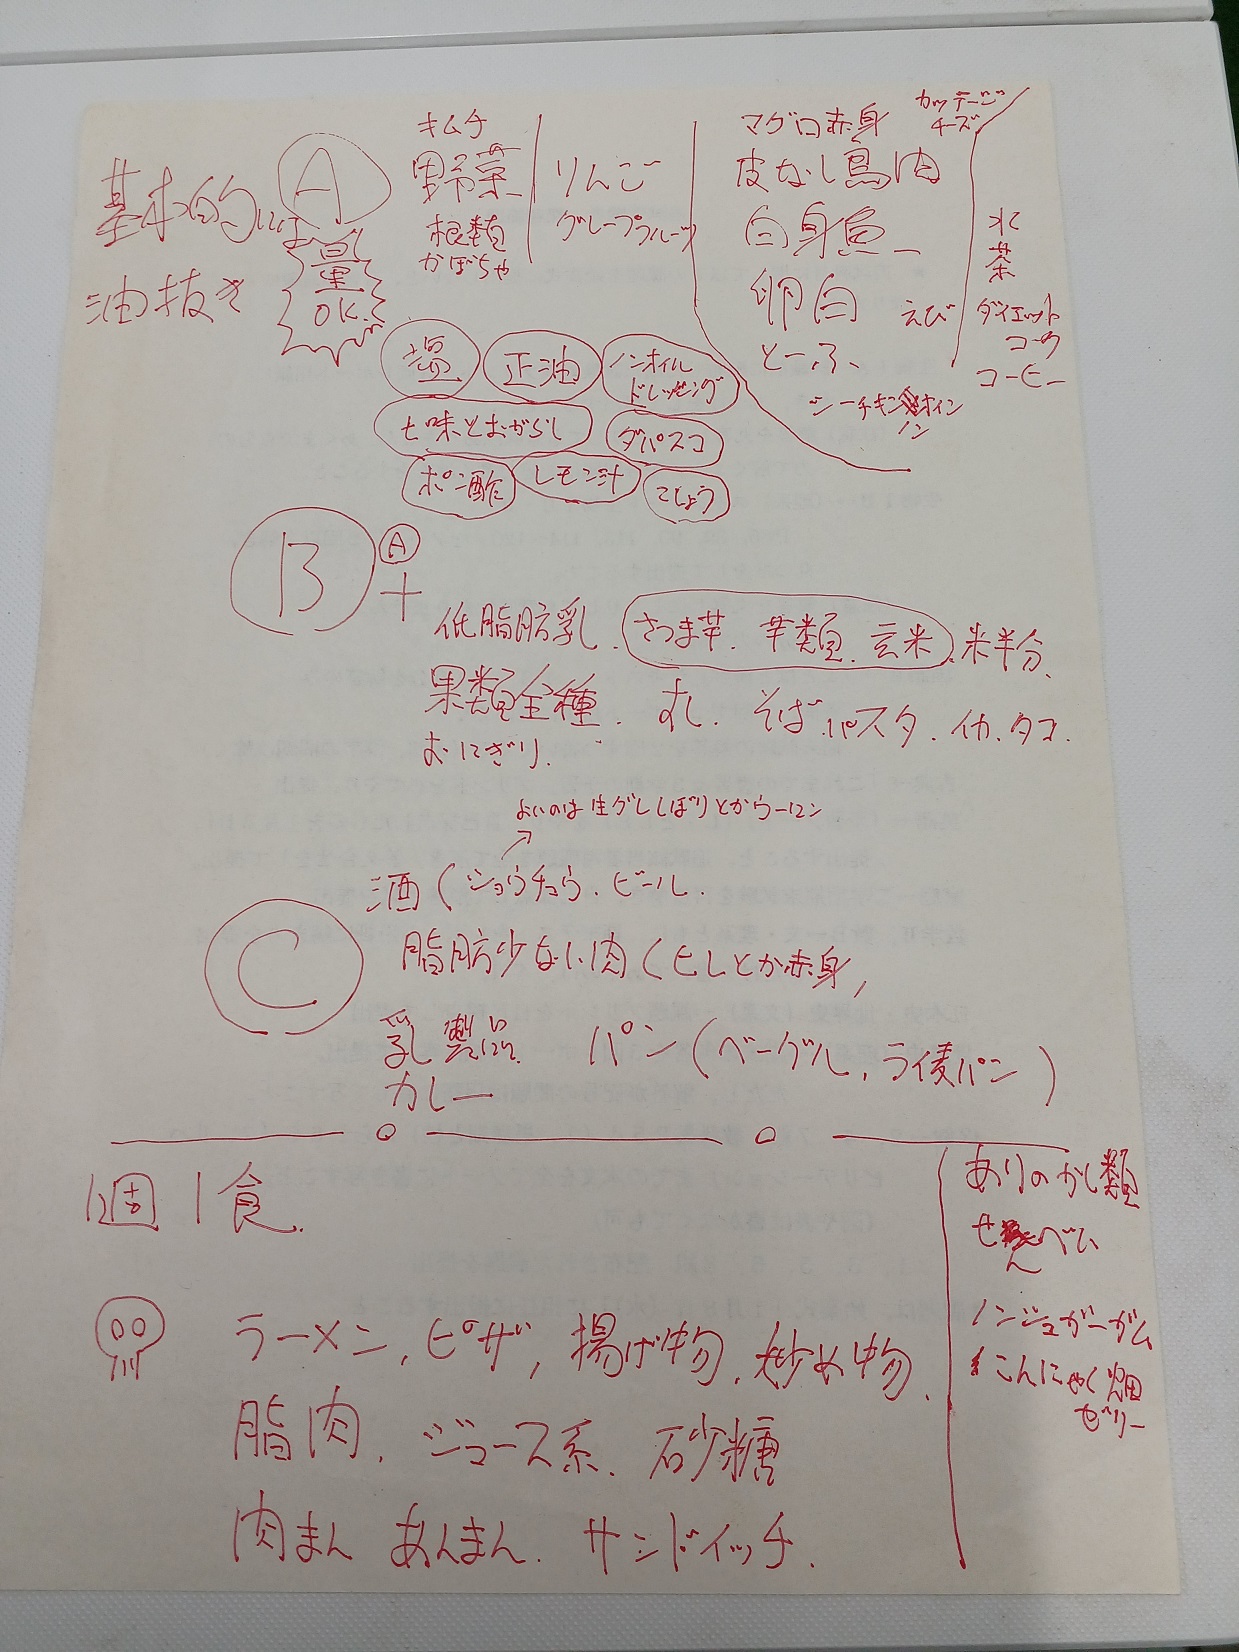 基本的には
油抜き
A
量
OK.
キムチ
野菜
根類
かぼちゃ
りんご
グレープフルーツ
マグロ赤身
カッテージ
チーズ
皮なし鳥肉
白身魚
卵白 えび
とーふ
シーチキン オイル
ノン
水
茶
ダイエット
コーク
コーヒー
塩
正油
ノンオイル
ドレッシング
七味とおがらし
タバスコ
ポン酢
レモン汁
こしょう
B
A
+
低脂肪乳. さつま芋. 芋類. 玄米. 米半分.
果類全種. すし. そば. パスタ. イカ. タコ.
おにぎり.
よいのは 生グレしぼりとかウーロン
C
酒(ショウチュウ. ビール.
脂肪少ない肉(ヒレとか赤身,
乳製品. パン(ベーグル, ライ麦パン)
カレー
1週1食.
ラーメン, ピザ, 揚げ物, 炒め物.
脂肉. ジュース系. 砂糖
肉まん あんまん. サンドイッチ.
ありのかし類
せんべい
ノンシュガーガム
こんにゃく畑
ゼリー